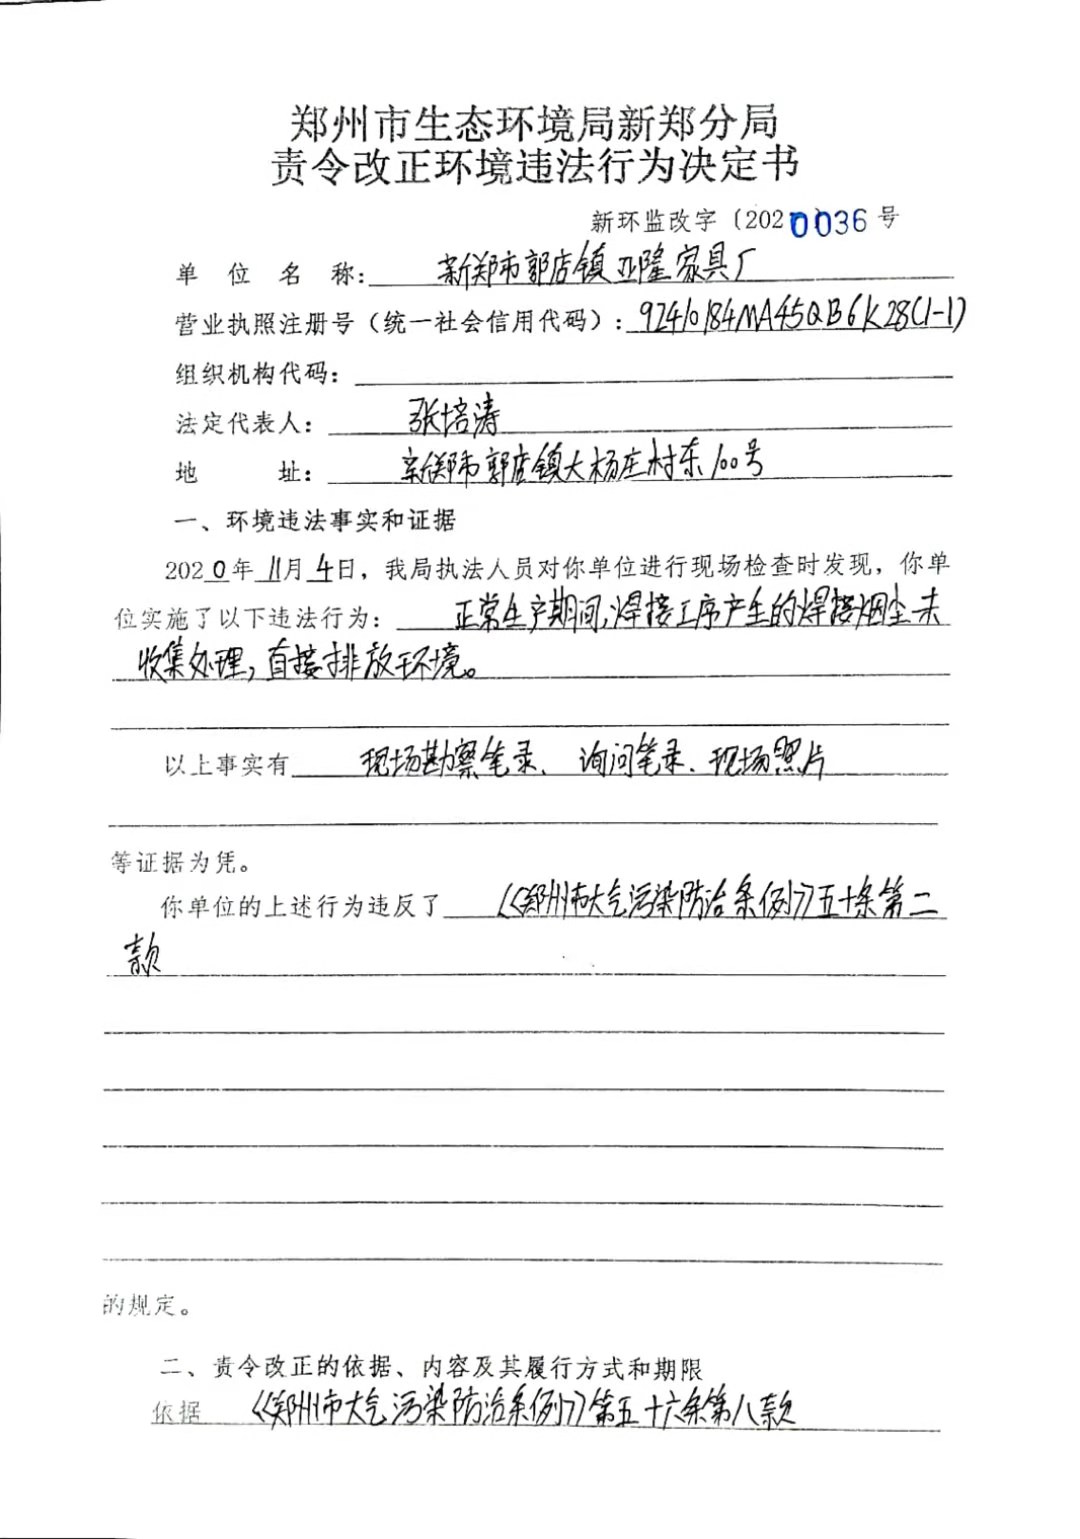 郑州市生态环境局新郑分局
责令改正环境违法行为决定书
新环监改字〔2020 0036号
单位名称：新郑市郭店镇亚隆家具厂
营业执照注册号（统一社会信用代码）：92410184MA45QB6K28(1-1)
组织机构代码：
法定代表人：张培涛
地址：新郑市郭店镇大杨庄村东100号
一、环境违法事实和证据
2020年11月4日，我局执法人员对你单位进行现场检查时发现，你单
位实施了以下违法行为：正常生产期间，焊接工序产生的焊接烟尘未
收集处理，直接排放环境。
以上事实有 现场勘察笔录、询问笔录、现场照片
等证据为凭。
你单位的上述行为违反了《郑州市大气污染防治条例》五十条第二
款
的规定。
二、责令改正的依据、内容及其履行方式和期限
依据《郑州市大气污染防治条例》第五十六条第八款